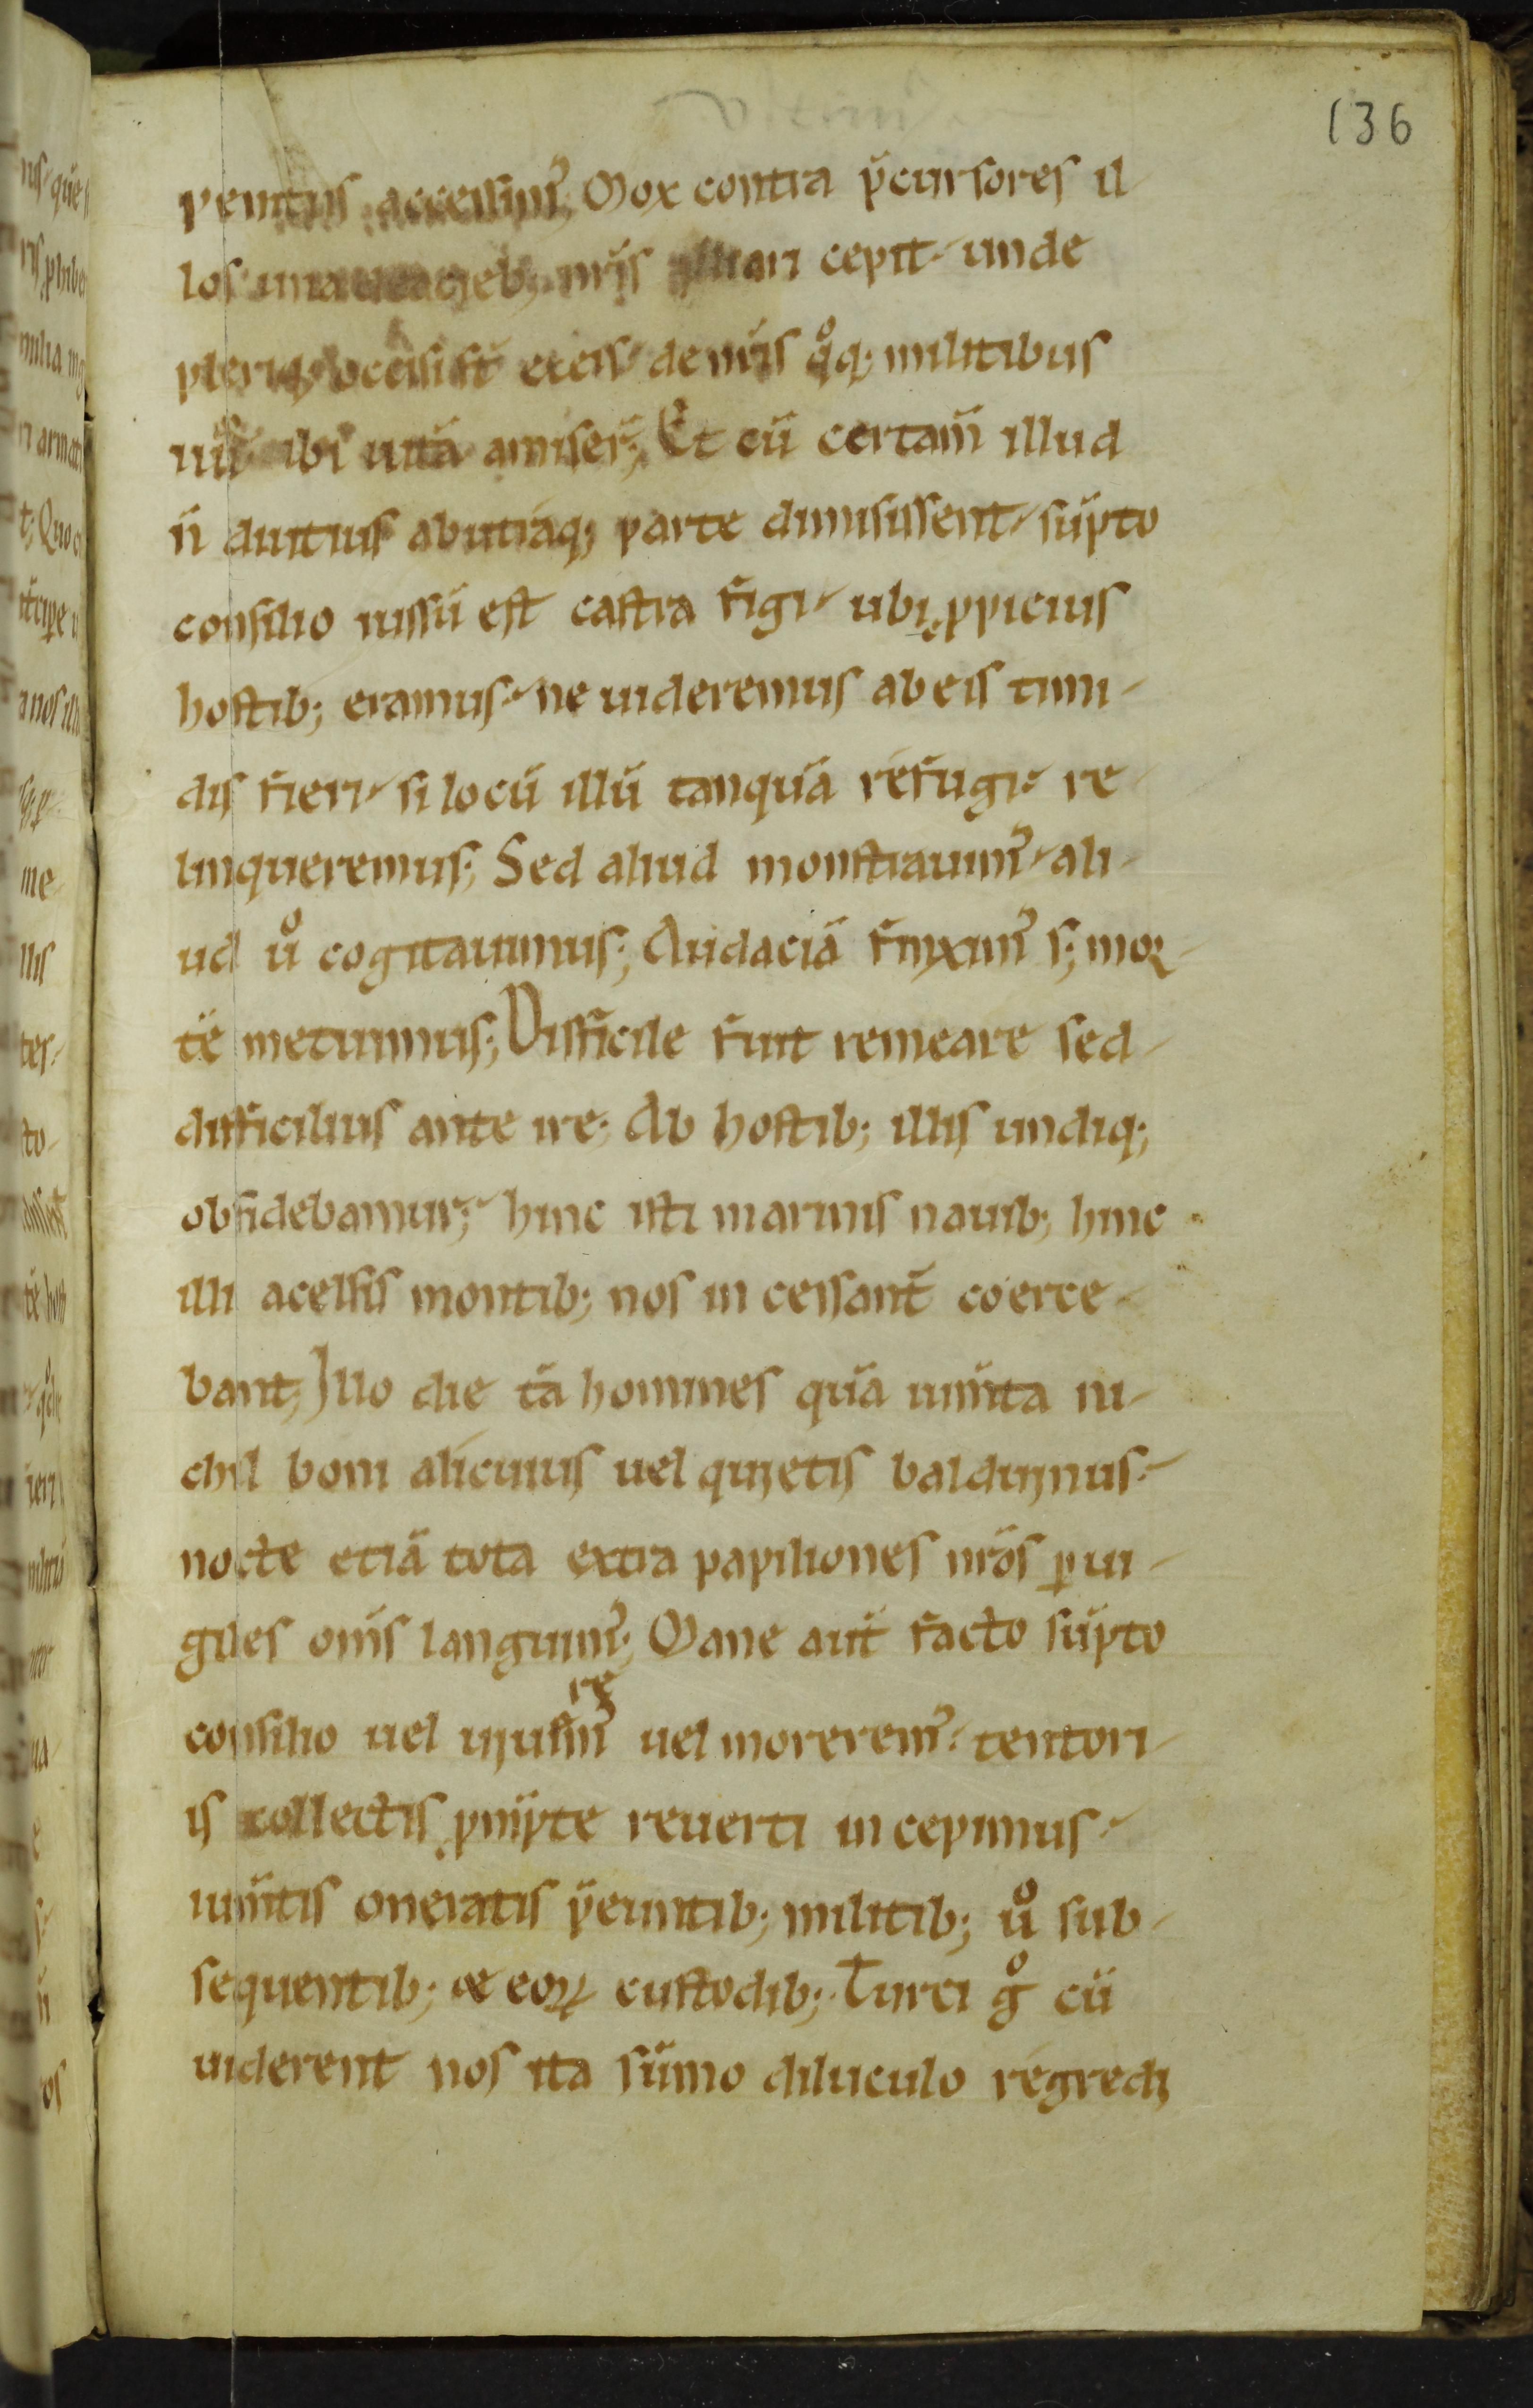 136
penitus accessim᷒; Mox contra p̄cursores il
los una acieb; nr̄is cepit unde
pleriq; occisi st̄ ex eis de nr̄is qͦq; militibus
iiiior ibi uitā amiser̄; Et cū certam̄ illud
n̄ diutius ab utraq; parte dimisissent sūpto
consilio iussū est castra figi ubi ꝓpicius
hostib; eramus ne uideremus ab eis timi-
dis fieri si locū illū tanquā refugi re-
linqueremus; Sed aliud monstrauim᷒ ali-
ud uͦ cogitauimus; Audaciā finxim᷒ s; mor-
tē metuimus; Difficile fuit remeare sed-
difficilius ante ire. Ab hostib; illis undiq;
obsidebamur; hinc isti marinis nauib; hinc
illi a celsis montib; nos in cessant̄ coerce-
bant; Illo die tā homines quā ium̄ta ni-
chil boni alicuius uel quietis habuimus
nocte etiā tota extra papiliones nr̄os ꝑui-
giles om̄s languim᷒; Mane aut̄ facto sūpto
consilio uel uiuerem᷒ uel morerem᷒ tentori-
is collectis ꝓmpte reuerti in cepimus
ium̄tis oneratis p̄euntib; militib; uͦ sub-
sequentib; & eoꝝ custodib; Turci gͦ cū
uiderent nos ita sūmo diluculo regredi